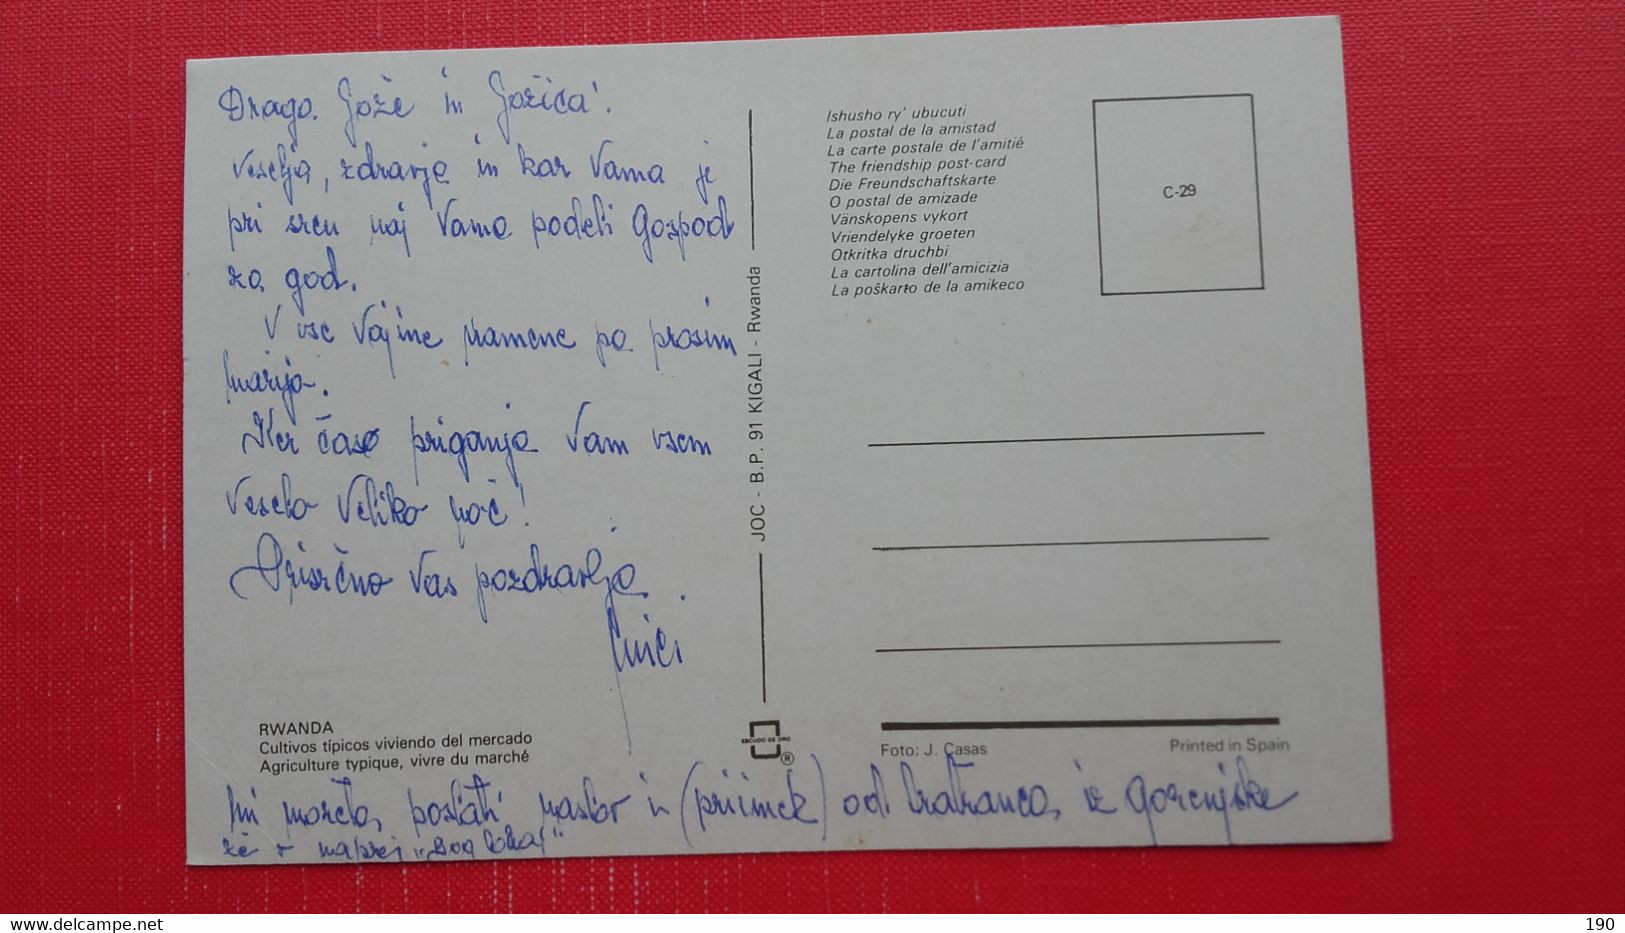 Drago. Jože in Jožica!
Veselja, zdravja in kar Vama je
pri srcu naj Vama podeli Gospod
za god.
V vse Vajine namene pa prosim
Marijo.
Ker čas priganja Vam vsem
Veselo Veliko noč!
Prisrčno Vas pozdravlja
RWANDA
Cultivos típicos viviendo del mercado
Agriculture typique, vivre du marché
JOC - B.P. 91 KIGALI - Rwanda
ESCUDO DE ORO
®
Ishusho ry' ubucuti
La postal de la amistad
La carte postale de l'amitié
The friendship post-card
Die Freundschaftskarte
O postal de amizade
Vänskopens vykort
Vriendelyke groeten
Otkritka druchbi
La cartolina dell'amicizia
La poŝkarto de la amikeco
C-29
Foto: J. Casas
Printed in Spain
Mi moreta poslati naslov in (priimek) od brata iz Gorenjske
že v naprej „Bog lonaj"
190